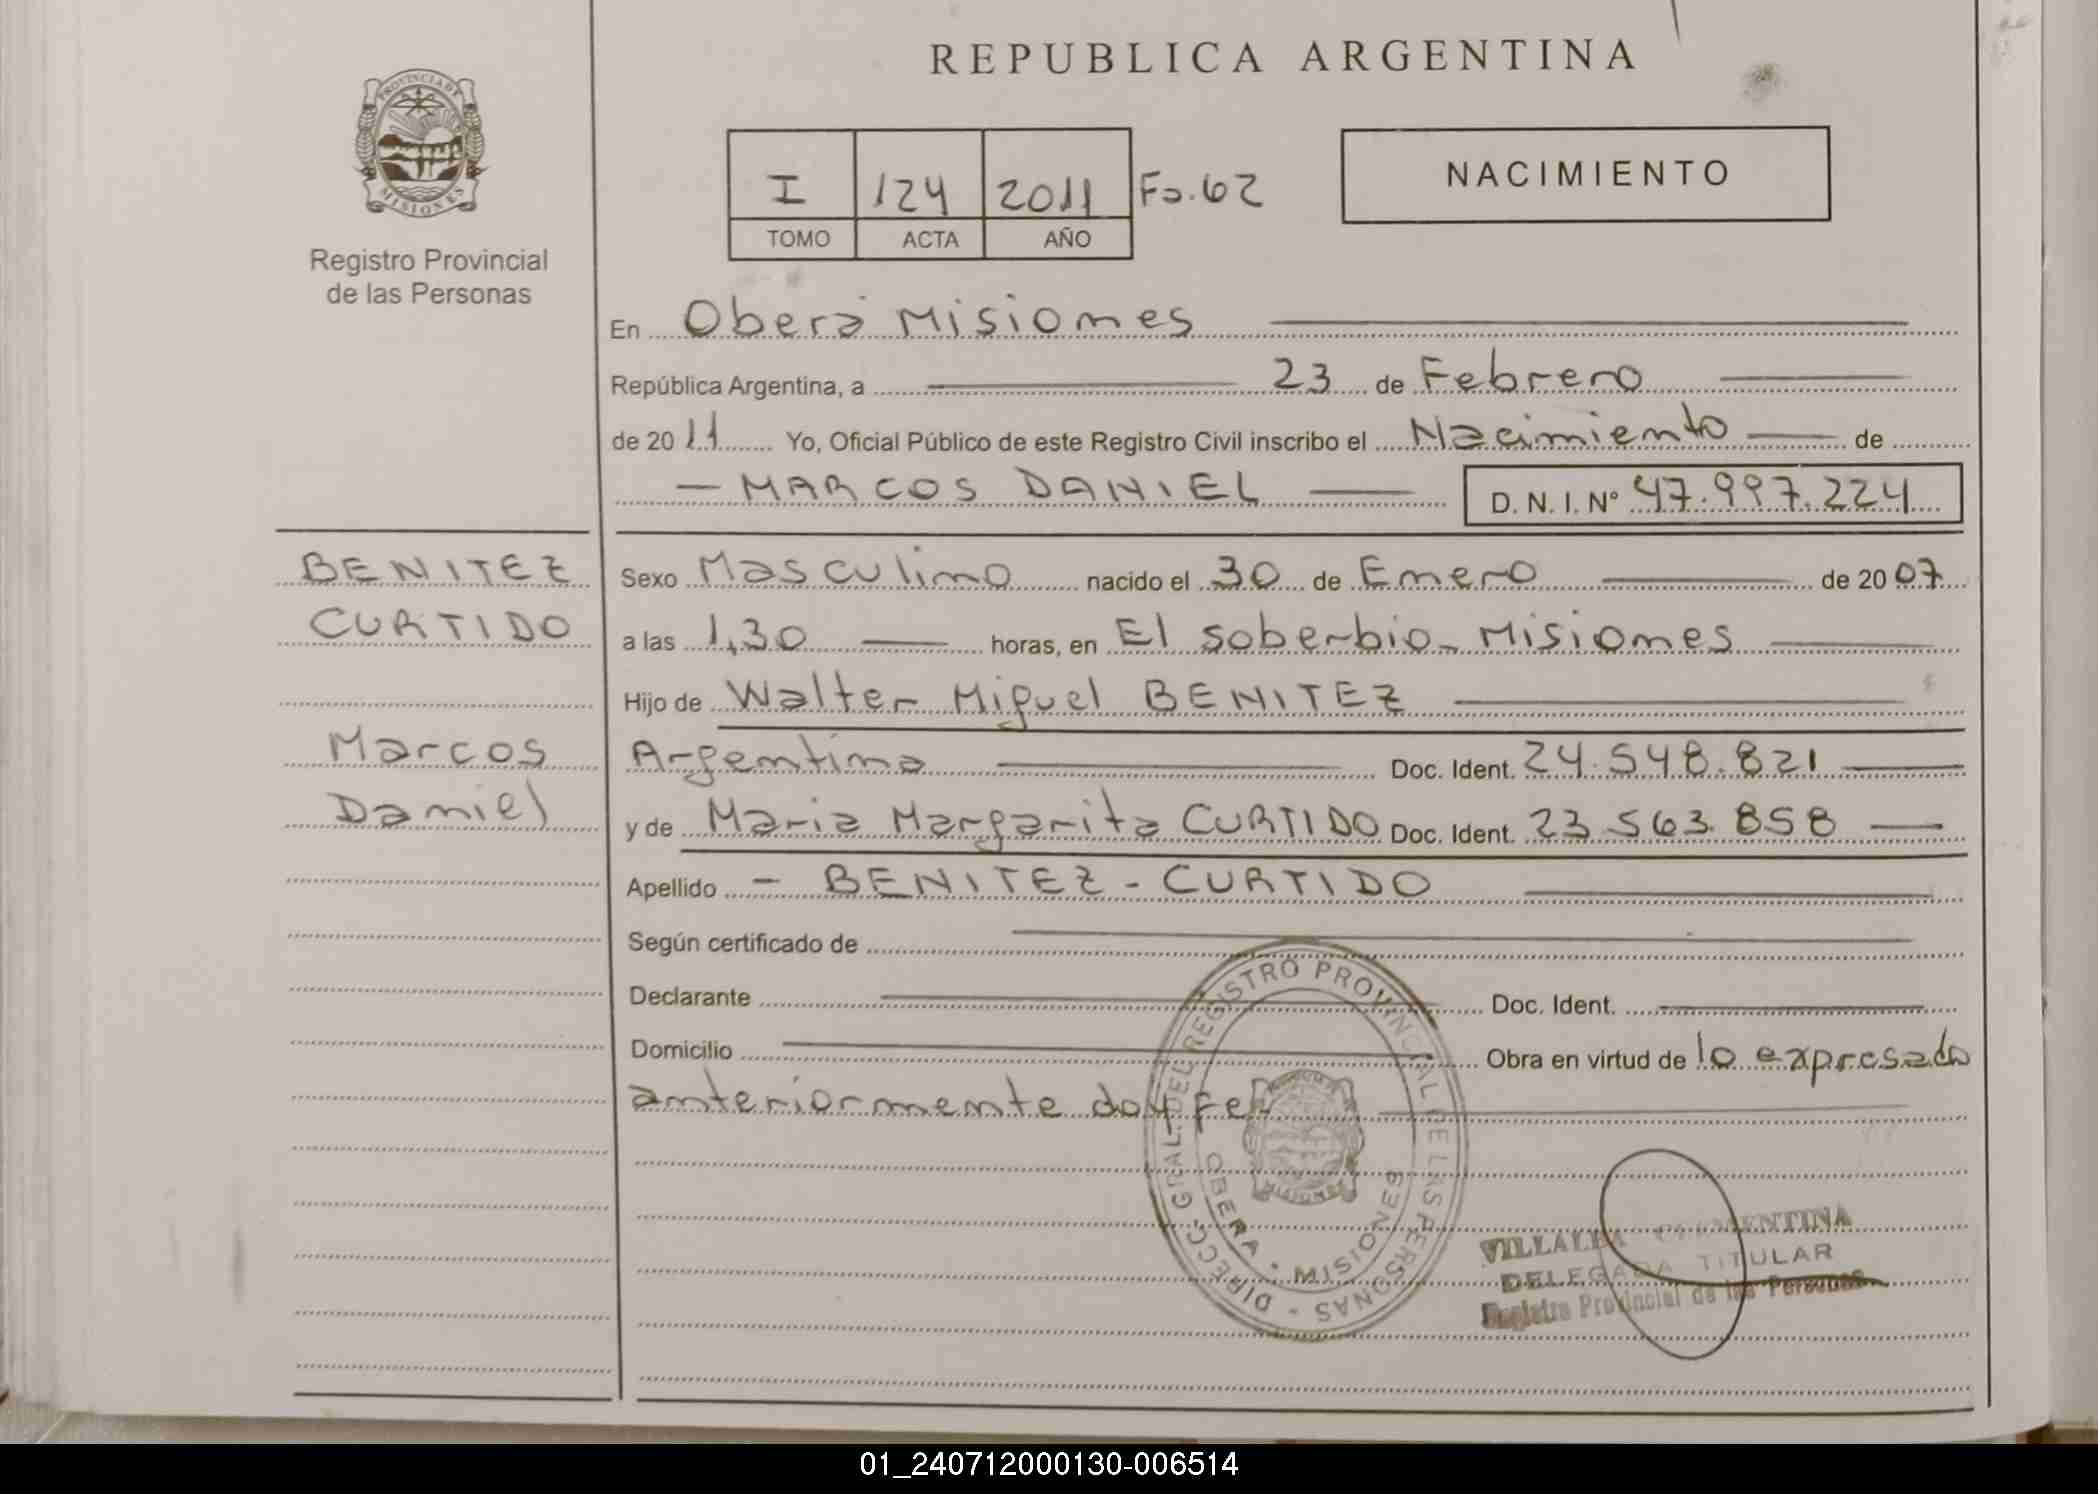 REPUBLICA ARGENTINA
PROVINCIA DE
MISIONES
Registro Provincial
de las Personas
I 124 2011 Fo. 62
TOMO ACTA AÑO
NACIMIENTO
En Oberá Misiones
República Argentina, a 23 de Febrero
de 2011 Yo, Oficial Público de este Registro Civil inscribo el Nacimiento de
- MARCOS DANIEL D. N. I. Nº 47.997.224
BENITEZ
CURTIDO
Marcos
Daniel
Sexo Masculino nacido el 30 de Enero de 2007
a las 1,30 horas, en El soberbio - Misiones
Hijo de Walter Miguel BENITEZ
Argentina Doc. Ident. 24.548.821
y de Maria Margarita CURTIDO Doc. Ident. 23.563.858
Apellido - BENITEZ - CURTIDO
Según certificado de
Declarante Doc. Ident.
Domicilio Obra en virtud de lo expresado
anteriormente doy Fe
DIRECC. GRAL. DEL REGISTRO PROVINCIAL DE LAS PERSONAS
OBERA - MISIONES
MISIONES
VILLALBA
DELEGADA TITULAR
Registro Provincial de las Personas
01_240712000130-006514